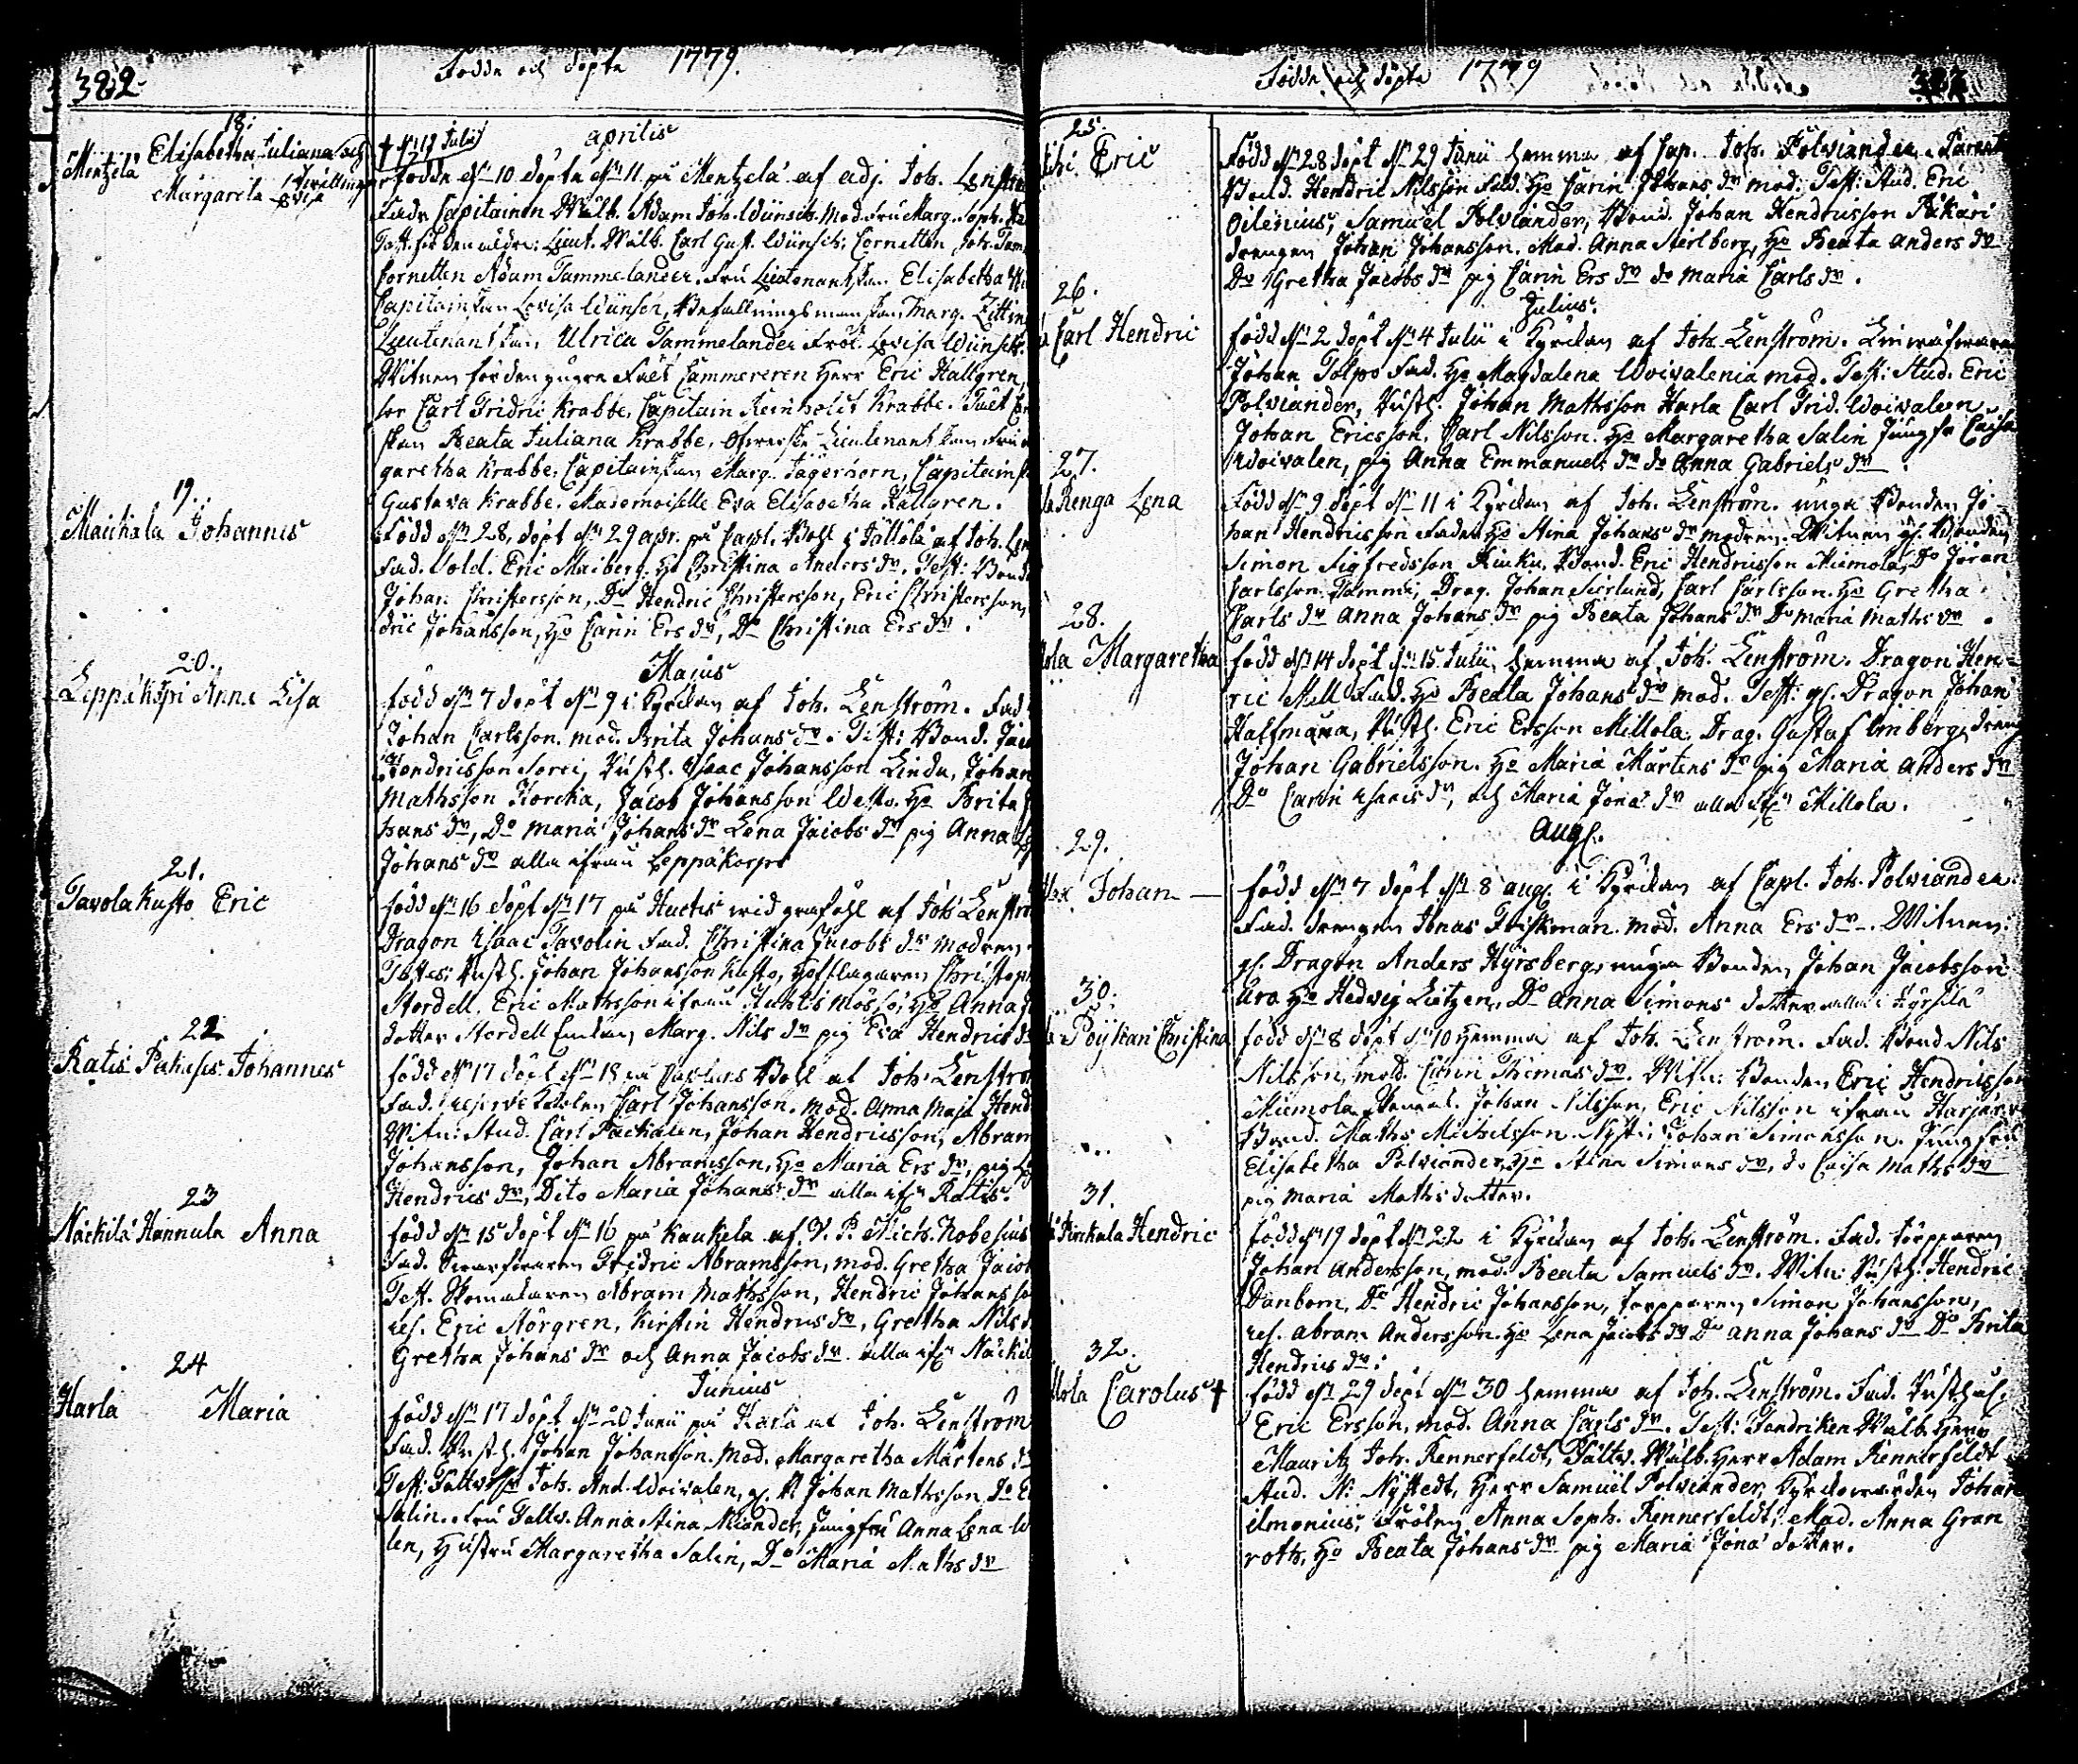 382
Födde och döpte 1779.
18.
Mentzelä Elisabetha Juliana och
Margareta Lovisa Tvillingar
Aprilis
födde d. 10 döpte d. 11 på Mentzelä af adj. Joh. Lenström
Fadr Capitainen Wälb. Adam Joh. Wünsch. Mod. Fru Marg. Soph.
Test. för den äldre: Lieut. Wälb. Carl Gust. Wünsch: Cornetten Joh. Tam
Cornetten Adam Tammelander. Fru Lieutenantskan Elisabetha
Capitainskan Lovisa Wünsch, Befallningsmanskan Marg.
Lieutenantskan Ulrica Tammelander Fröl. Lovisa Wünsch.
Witnen för den yngre Cammereren Herr Eric Hallgren,
Carl Fridric Krabbe, Capitain Reinholdt Krabbe.
skan Beata Juliana Krabbe, Lieutenantskan Fru
garetha Krabbe, Capitainskan Marg. Jägerhorn, Capitainsk
Gustava Krabbe. Mademoiselle Eva Elisabetha Hallgren.
19.
Maichala Johannis
Född d. 28, döpt d. 29 apr. på Capl. Boll i Jällola af Joh. Len
Fad. Sold. Eric Maiberg. Ho Christina Anders dr. Test: Bond
Johan Christersson, Do Hendric Christersson, Eric Christersson,
dric Johansson, Ho Carin Ers dr, Do Christina Ers dr.
Majus
20.
Leppäkorpi Anna Lisa
född d. 7 döpt d. 9 i Kyrckan af Joh. Lenström. Fad
Johan Carlsson. mod. Brita Johans dr. Test: Bond. Jac
Hendricsson Sorri, Rusth. Isaac Johansson Lindu, Johan
Mathsson Korckia, Jacob Johansson Ho Brita
hans dr, Do Maria Johans dr Lena Jacobs dr pig Anna
Johans dr alla ifrån Leppäkorpi
21.
Tavola Kusto Eric
född d. 16 döpt d. 17 på Huctis wid grafööl af Joh Lenströ
Dragon Isaac Tavolin Fad. Christina Jacobs dr modren.
Testes: Rusth. Johan Johansson Kusto, Hofslagaren Christoph
Nordell. Eric Mathsson ifrån Ho Anna
dotter Nordell Enckan Marg. Nils dr pig Eva Hendrics dr
22
Ratis Pakuses Johannes
född d. 17 döpt d. 18 på Boll af Joh. Lenström
Fad. reserve Karlen Carl Johansson. mod. Anna Maja Hend
Witn: Stud. Carl Pachalen, Johan Hendricsson, Abram
Johansson, Johan Abramsson, Ho Maria Ers dr, pig
Hendrics dr, Dito Maria Johans dr alla ifr Ratis.
23
Näckilä Hannula Anna
född d. 15 döpt d. 16 på Kaukela af V. P. Mich. Robesius
Fad. Fridric Abramsson, mod. Gretha Jacob
Test. Skomakaren Abram Mathsson, Hendric Johansso
res. Eric Norgren, Kirstin Hendrics dr, Gretha Nils
Gretha Johans dr och Anna Jacobs dr alla ifr Näckil
Junius
24
Harla Maria
född d. 17 döpt d. 20 Junii på Harla af Joh. Lenström
Fad. Rusth. Johan Johansson. mod. Margaretha Mårtens dr
Test: Joh. And. Woivalen, Johan Mathsson, Do
Salin. Fru Fältw. Anna Stina Neander, Jungfru Anna Lena
len, Hustru Margaretha Salin, Do Maria Maths dr
Födde och döpte 1779
383
25.
Eric
Född d. 28 döpt d. 29 Junii hemma af Cap. Joh. Polviander
Bond. Hendric Nilsson Fad. Ho Carin Johans dr mod. Test: Stud. Eric
Oilenius, Samuel Polviander, Bond. Johan Hendricsson Pukari
drengen Johan Johansson. Mad. Anna Stirlborg, Ho Beata Anders dr
Do Gretha Jacobs dr pig Carin Ers dr do Maria Carls dr.
Julius
26.
Carl Hendric
född d. 2 döpt d. 4 Julii i Kyrckan af Joh. Lenström.
Johan Tolpo Fad. Ho Magdalena Woivalenia mod. Test: Stud. Eric
Polviander, Rusth. Johan Mathsson Harla Carl Frid. Woivalen
Johan Ericsson. Carl Nilsson. Ho Margaretha Salin Jungfr Caisa
Woivalen, pig Anna Emmanuels dr do Anna Gabriels dr.
27.
Renga Lena
född d. 9 döpt d. 11 i Kyrckan af Joh. Lenström. unga Bonden Jo
han Hendricsson Fader Ho Stina Johans dr modren. Witnen gl. Bonden
Simon Sigfredsson Bond. Eric Hendricsson Miemola, Do Jöran
Carlsson Tammi, Drag. Johan Sierlund, Carl Carlsson. Ho Gretha
Carls dr Anna Johans dr pig Beata Johans dr Do Maria Maths dr.
28.
Margaretha
född d. 14 döpt d. 15 Julii, hemma af Joh. Lenström. Dragon Hen-
ric Mell Fad. Ho Beata Johans dr mod. Test: gl. Dragon Johan
Halfmåna, Rusth. Eric Ersson Millola. Drag. Gustaf Imberg, dreng
Johan Gabrielsson. Ho Maria Mårtens dr pig Maria Anders dr
Do Carin Isacs dr, och Maria Jona dr alla ifr Millola.
Aug.
29.
Johan
född d. 7 döpt d. 8 aug. i Kyrckan af Capl. Joh. Polviander.
Fad. drengen Jonas Friskman. mod. Anna Ers dr. Witnen:
gl. Dragon Anders Hyrsberg, unga Bonden Johan Jacobsson
Uro Ho Hedvig Lutzen, Do Anna Simons dotter alla i Hyrsilä
30.
Pöykari Christina
född d. 8 döpt d. 10 hemma af Joh. Lenström. Fad. Bond Nils
Nilsson, mod. Carin Thomas dr. Witn: Bonden Eric Hendricsson
Miemola, Johan Nilsson, Eric Nilsson ifrån Harju
Bond. Maths Michelsson Nysti, Johan Simonsson. Jungfru
Elisabetha Polviander, Ho Stina Simons dr, do Caisa Maths dr
pig Maria Maths dotter.
31.
Kirckala Hendric
född d. 19 döpt d. 22 i Kyrckan af Joh. Lenström. Fad. torpparen
Johan Andersson, mod. Beata Samuels dr. Witn: Rusth. Hendric
Danbom, Do Hendric Johansson, torpparen Simon Johansson,
res. Abram Andersson. Ho Lena Jacobs dr Do Anna Johans dr Do Brita
Hendrics dr.
32.
Carolus †
född d. 29 döpt d. 30 hemma af Joh. Lenström. Fad. Rusthål.
Eric Ersson, mod. Anna Carls dr. Test: Fendriken Wälb. Herr
Mauritz Joh. Rennerfeldt, Fältw. Wälb. Herr Adam Rennerfeldt
Stud. N. Nystedt, Herr Samuel Polviander, Kyrckowärden Johan
ilmonius, Fröken Anna Soph. Rennerfeldt, Mad. Anna Gran
roth, Ho Beata Johans dr pig Maria Jona dotter.